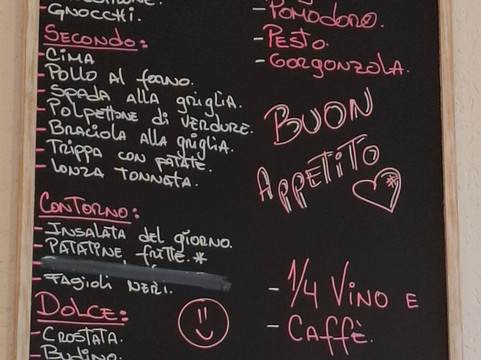 - GNOCCHI.
SECONDO:
- CIMA
- POLLO AL FORNO.
- SPADA ALLA GRIGLIA.
- POLPETTONE DI VERDURE.
- BRACIOLA ALLA GRIGLIA.
- TRIPPA CON PATATE.
- LONZA TONNATA.
CONTORNO:
- INSALATA DEL GIORNO.
- PATATINE FRITTE.*
- FAGIOLI NERI.
DOLCE:
- CROSTATA.
- BUDINO.
- POMODORO.
- PESTO.
- GORGONZOLA.
BUON
APPETITO
*
- 1/4 VINO E
- CAFFÈ.